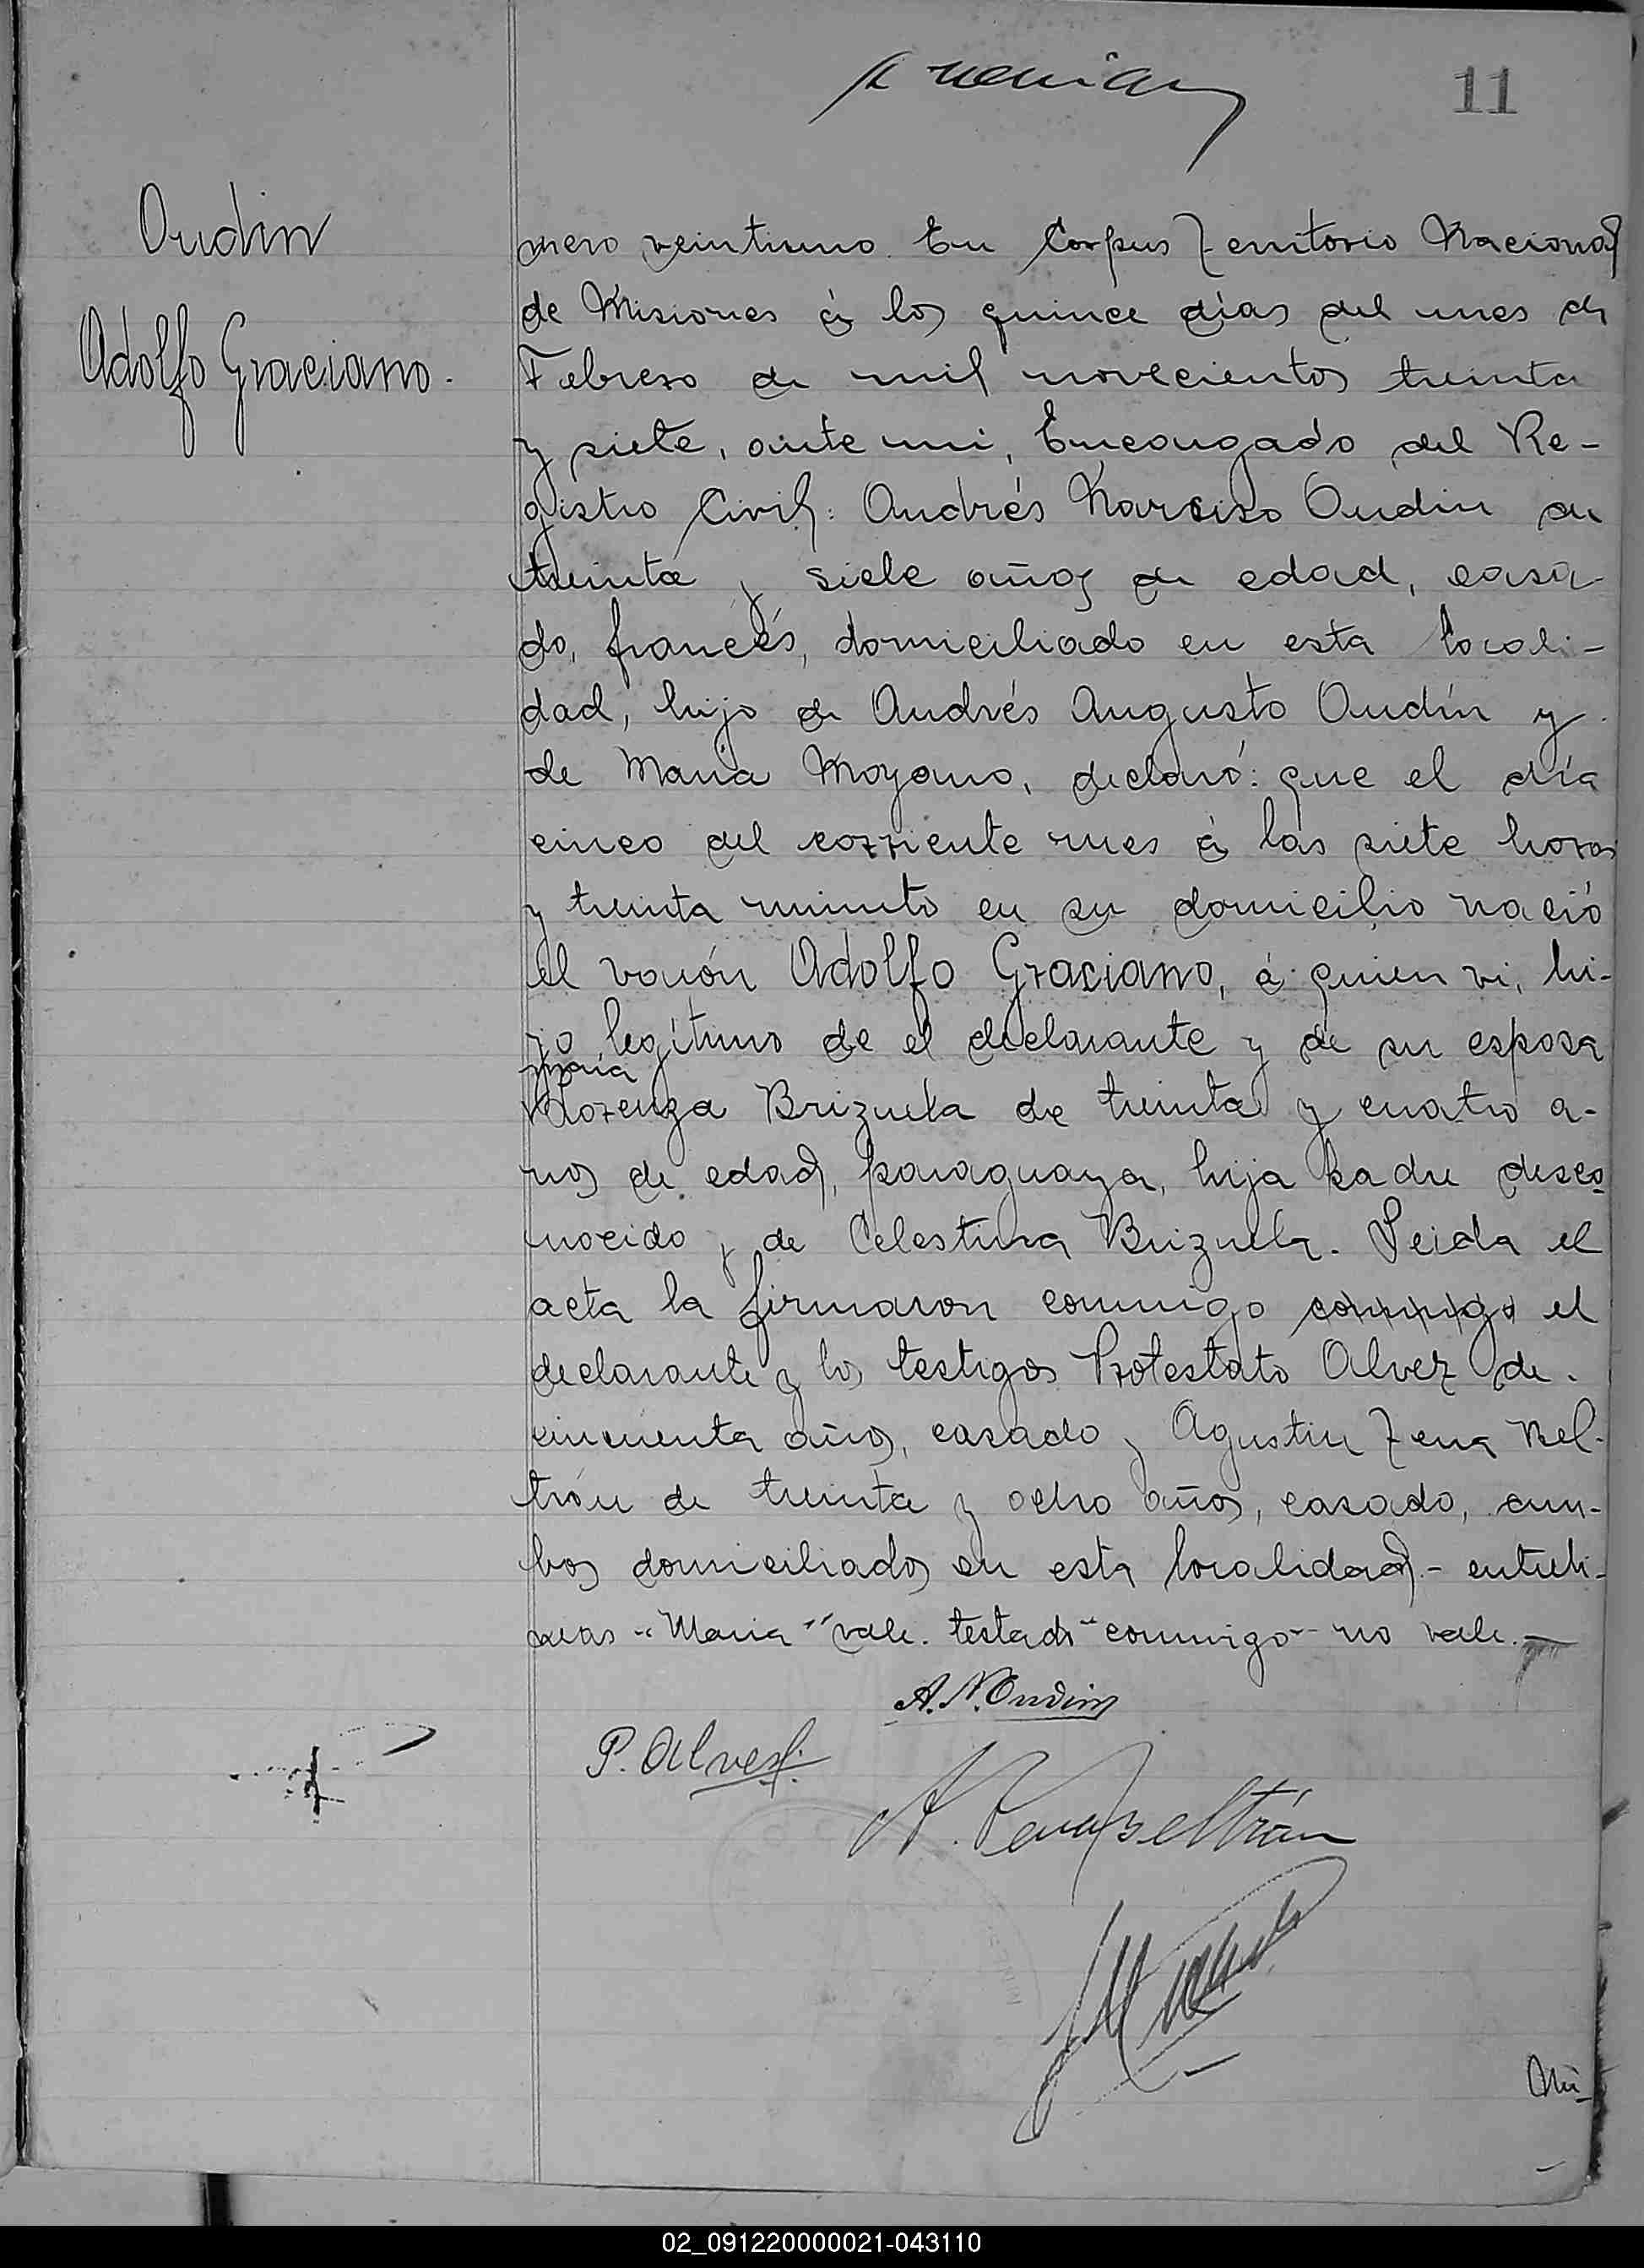 11
Oudin
Adolfo Graciano.
mero veintiuno. En Corpus Territorio Nacional
de Misiones á los quince días del mes de
Febrero de mil novecientos treinta
y siete, ante mi, Encargado del Re-
gistro Civil: Andrés Narciso Oudin de
treinta y siete años de edad, casa-
do, francés, domiciliado en esta locali-
dad, hijo de Andrés Augusto Oudín y
de Maria Moyano, declaró: que el día
cinco del corriente mes á las siete horas
y treinta minuto en su domicilio nació
el varón Adolfo Graciano, á quien vi, hi-
jo legítimo de el declarante y de su esposa
maria
Lorenza Brizuela de treinta y cuatro a-
nos de edad, paraguaya, hija padre desco-
nocido y de Celestina Brizuela. Leida el
acta la firmaron conmigo conmigo el
declarante y los testigos Protestato Alvez de
cincuenta años, casado y Agustin Zena Bel-
trán de treinta y ocho años, casado, am-
bos domiciliados en esta localidad.- entreli-
neas "Maria" vale. testado "conmigo" no vale.-
A. N. Oudin
P. Alvez.
A. Beltrán
Nú-
02_091220000021-043110